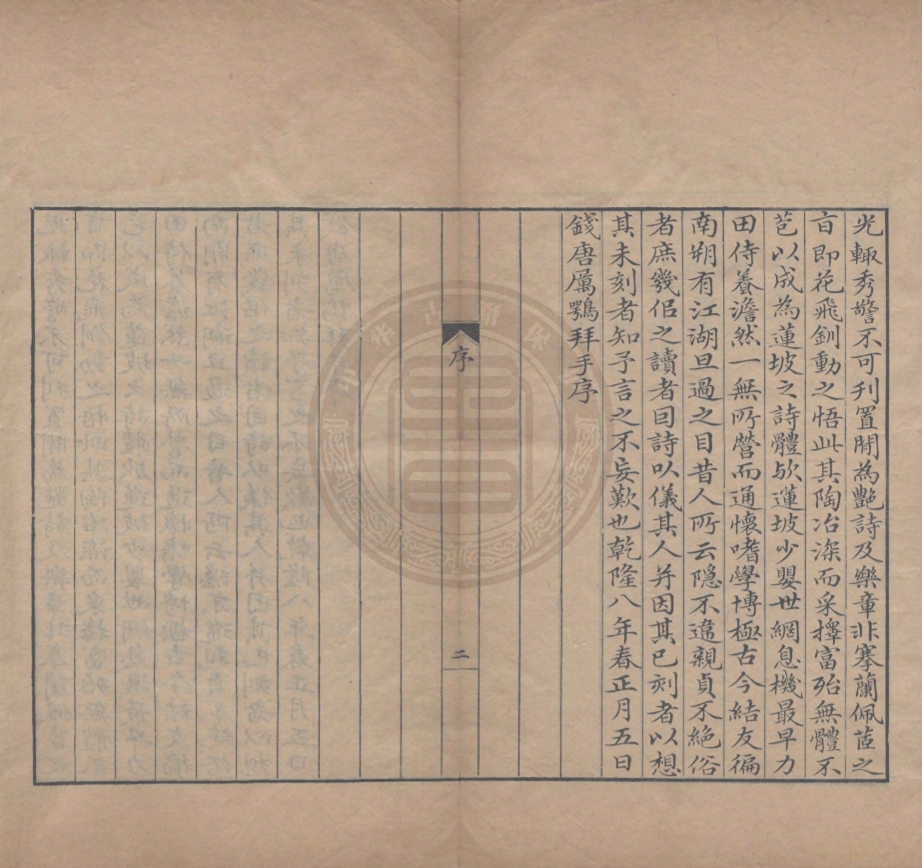 光輙秀警不可刋置閒為艷詩及樂章非搴蘭佩茝之
㫖即花飛釧動之悟此其陶冶深而采擇富殆無體不
苞以成為蓮坡之詩體欤蓮坡少嬰世綱息機最早力
田侍養澹然一無所營而通懷嗜學博極古今結友徧
南朔有江湖旦過之目昔人所云隠不違親貞不絶俗
者庶幾侣之讀者囙詩以儀其人并因其已刻者以想
其未刻者知予言之不妄歎也乾隆八年春正月五日
錢唐厲鶚拜手序
序
二